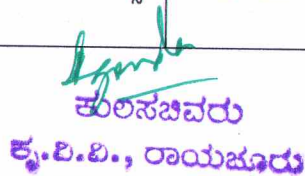 ಕುಲಸಚಿವರು
ಕೃ.ವಿ.ವಿ., ರಾಯಚೂರು